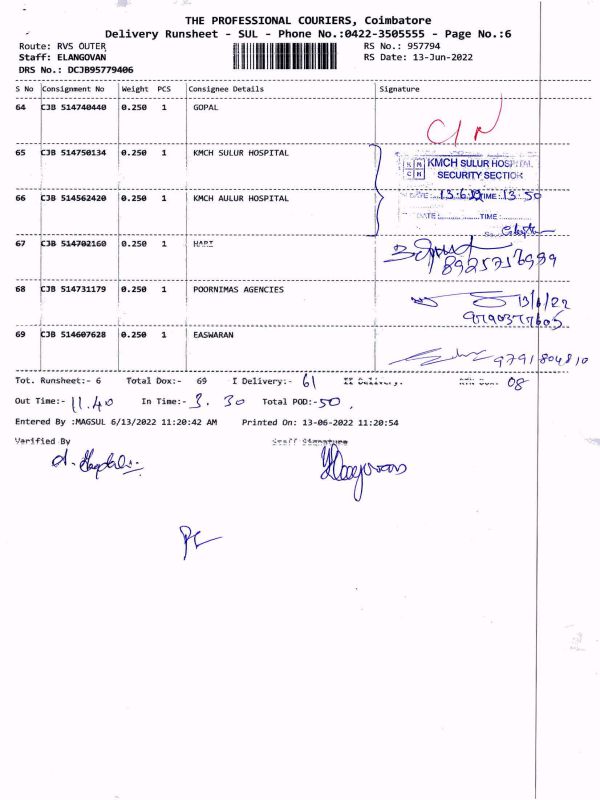 THE PROFESSIONAL COURIERS, Coimbatore
Delivery Runsheet - SUL - Phone No.:0422-3505555 - Page No.:6
Route: RVS OUTER RS No.: 957794
Staff: ELANGOVAN RS Date: 13-Jun-2022
DRS No.: DCJB95779406
S No Consignment No Weight PCS Consignee Details Signature
64 CJB 514740440 0.250 1 GOPAL
65 CJB 514750134 0.250 1 KMCH SULUR HOSPITAL
KMCH SULUR HOSPITAL
SECURITY SECTION
DATE: 13.6.22 TIME: 13:50
66 CJB 514562420 0.250 1 KMCH AULUR HOSPITAL
DATE: TIME:
67 CJB 514702160 0.250 1 HARI
68 CJB 514731179 0.250 1 POORNIMAS AGENCIES
13/6/22
69 CJB 514607628 0.250 1 EASWARAN
9791804810
Tot. Runsheet:- 6 Total Dox:- 69 I Delivery:- 61 II Delivery. 08
Out Time:- 11.40 In Time:- 3.30 Total POD:- 50.
Entered By :MAGSUL 6/13/2022 11:20:42 AM Printed On: 13-06-2022 11:20:54
Verified By Staff Signature